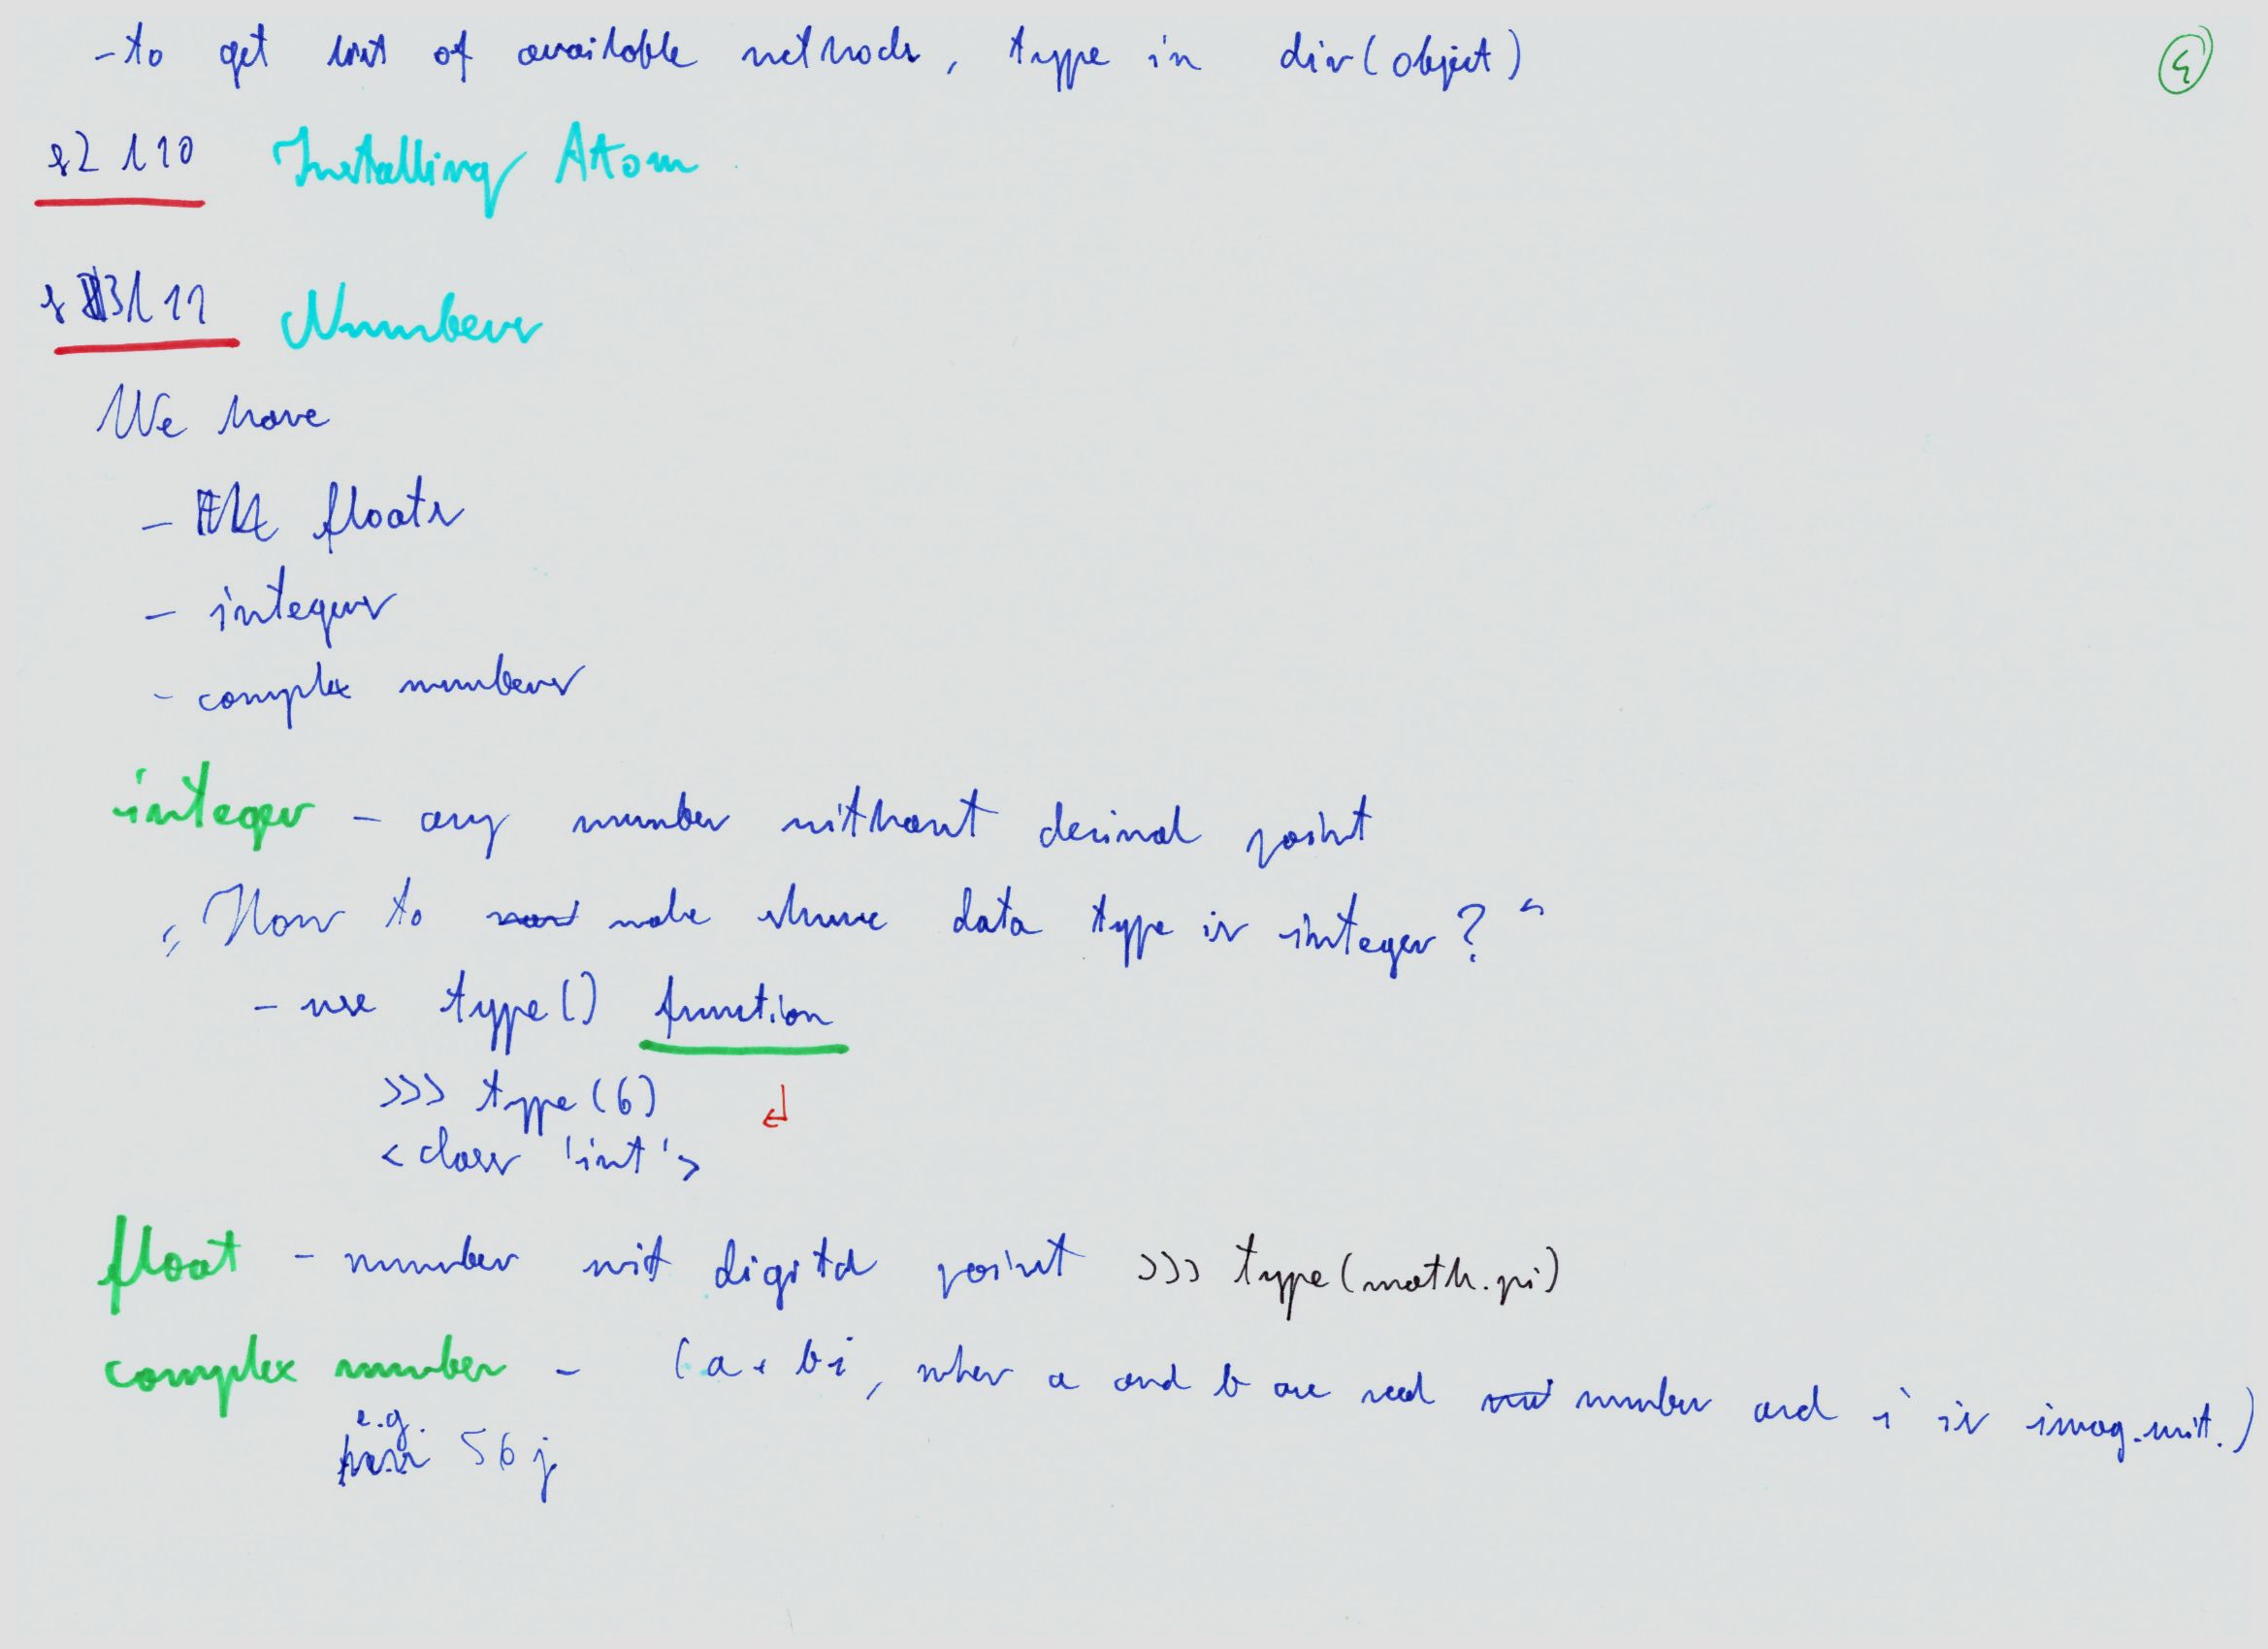 - to get list of available methods, type in dir(object)
s2 l10 Installing Atom
s3 l11 Numbers
We have
- floats
- integers
- complex numbers
integer - any number without decimal point
„How to make shure data type is integer?“
- use type() function
>>> type(6) ↲
<class 'int'>
float - number wit digital point >>> type(math.pi)
complex number - (a + bi, when a and b are real number and i is imag. unit.)
e.g.
56j